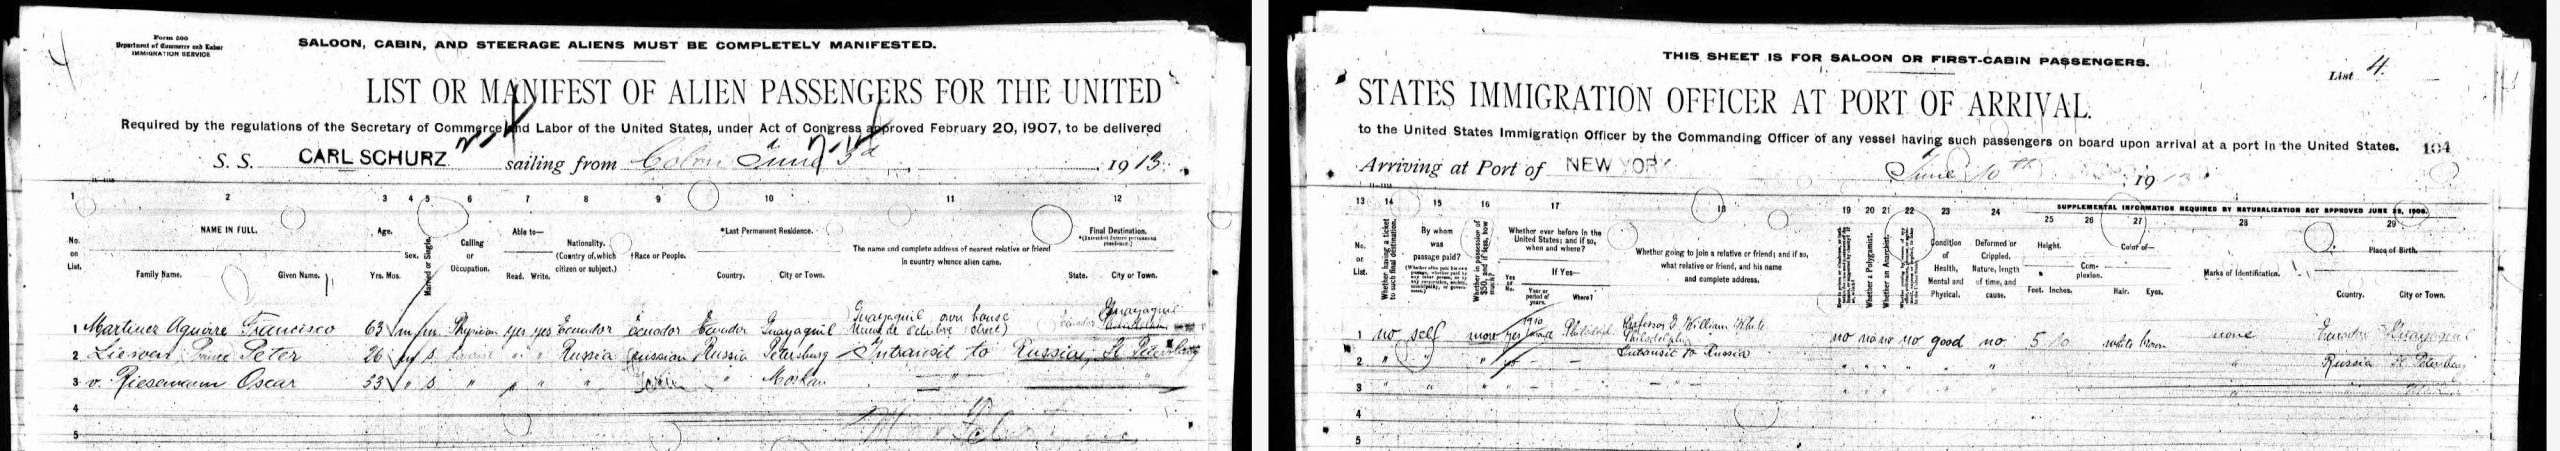 4
Form 500
Department of Commerce and Labor
IMMIGRATION SERVICE
SALOON, CABIN, AND STEERAGE ALIENS MUST BE COMPLETELY MANIFESTED.
LIST OR MANIFEST OF ALIEN PASSENGERS FOR THE UNITED
Required by the regulations of the Secretary of Commerce and Labor of the United States, under Act of Congress approved February 20, 1907, to be delivered
S. S. CARL SCHURZ sailing from Colon June 3d, 1913.
1 2 3 4 5 6 7 8 9 10 11 12
No. on List.
NAME IN FULL.
Family Name. Given Name.
Age.
Yrs. Mos.
Sex.
Married or Single.
Calling or Occupation.
Able to—
Read. Write.
Nationality. (Country of which citizen or subject.)
†Race or People.
*Last Permanent Residence.
Country. City or Town.
The name and complete address of nearest relative or friend in country whence alien came.
Final Destination.
*(Intended future permanent residence.)
State. City or Town.
1 Martinez Aguirre Francisco 63 m m Physician yes yes Ecuador Ecuador Ecuador Guayaquil Guayaquil own house Ecuador Guayaquil
2 Lieven Prince Peter 26 m s tourist " " Russia Russian Russia Petersburg Intransit to Russia, St. Petersburg
3 v. Riesemann Oscar 33 " s " " " " " Moskau
4
5
THIS SHEET IS FOR SALOON OR FIRST-CABIN PASSENGERS.
List 4.
STATES IMMIGRATION OFFICER AT PORT OF ARRIVAL.
to the United States Immigration Officer by the Commanding Officer of any vessel having such passengers on board upon arrival at a port in the United States. 104
Arriving at Port of NEW YORK June 10th, 1913
13 14 15 16 17 18 19 20 21 22 23 24
SUPPLEMENTAL INFORMATION REQUIRED BY NATURALIZATION ACT APPROVED JUNE 29, 1906.
25 26 27 28 29
No. on List.
Whether having a ticket to such final destination.
By whom was passage paid?
Whether in possession of $50, and if less, how much?
Whether ever before in the United States; and if so, when and where?
Yes or No.
If Yes—
Year or period of years. Where?
Whether going to join a relative or friend; and if so, what relative or friend, and his name and complete address.
Whether a Polygamist.
Whether an Anarchist.
Condition of Health, Mental and Physical.
Deformed or Crippled. Nature, length of time, and cause.
Height.
Feet. Inches.
Complexion.
Color of—
Hair. Eyes.
Marks of Identification.
Place of Birth.
Country. City or Town.
1 no self more yes 1910 Professor William White Philadelphia no no no no good no 5 10 white brown none Ecuador Guayaquil
2 " " " — — Intransit to Russia " " " " " " " Russia St. Petersburg
3 " " " " " " " "
4
5